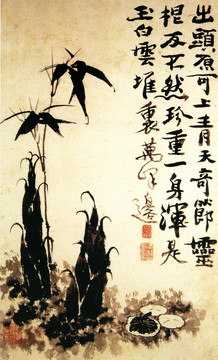 出頭原可上青天奇節靈
根反不然珍重一身渾是
玉白雲堆裏萬年邊